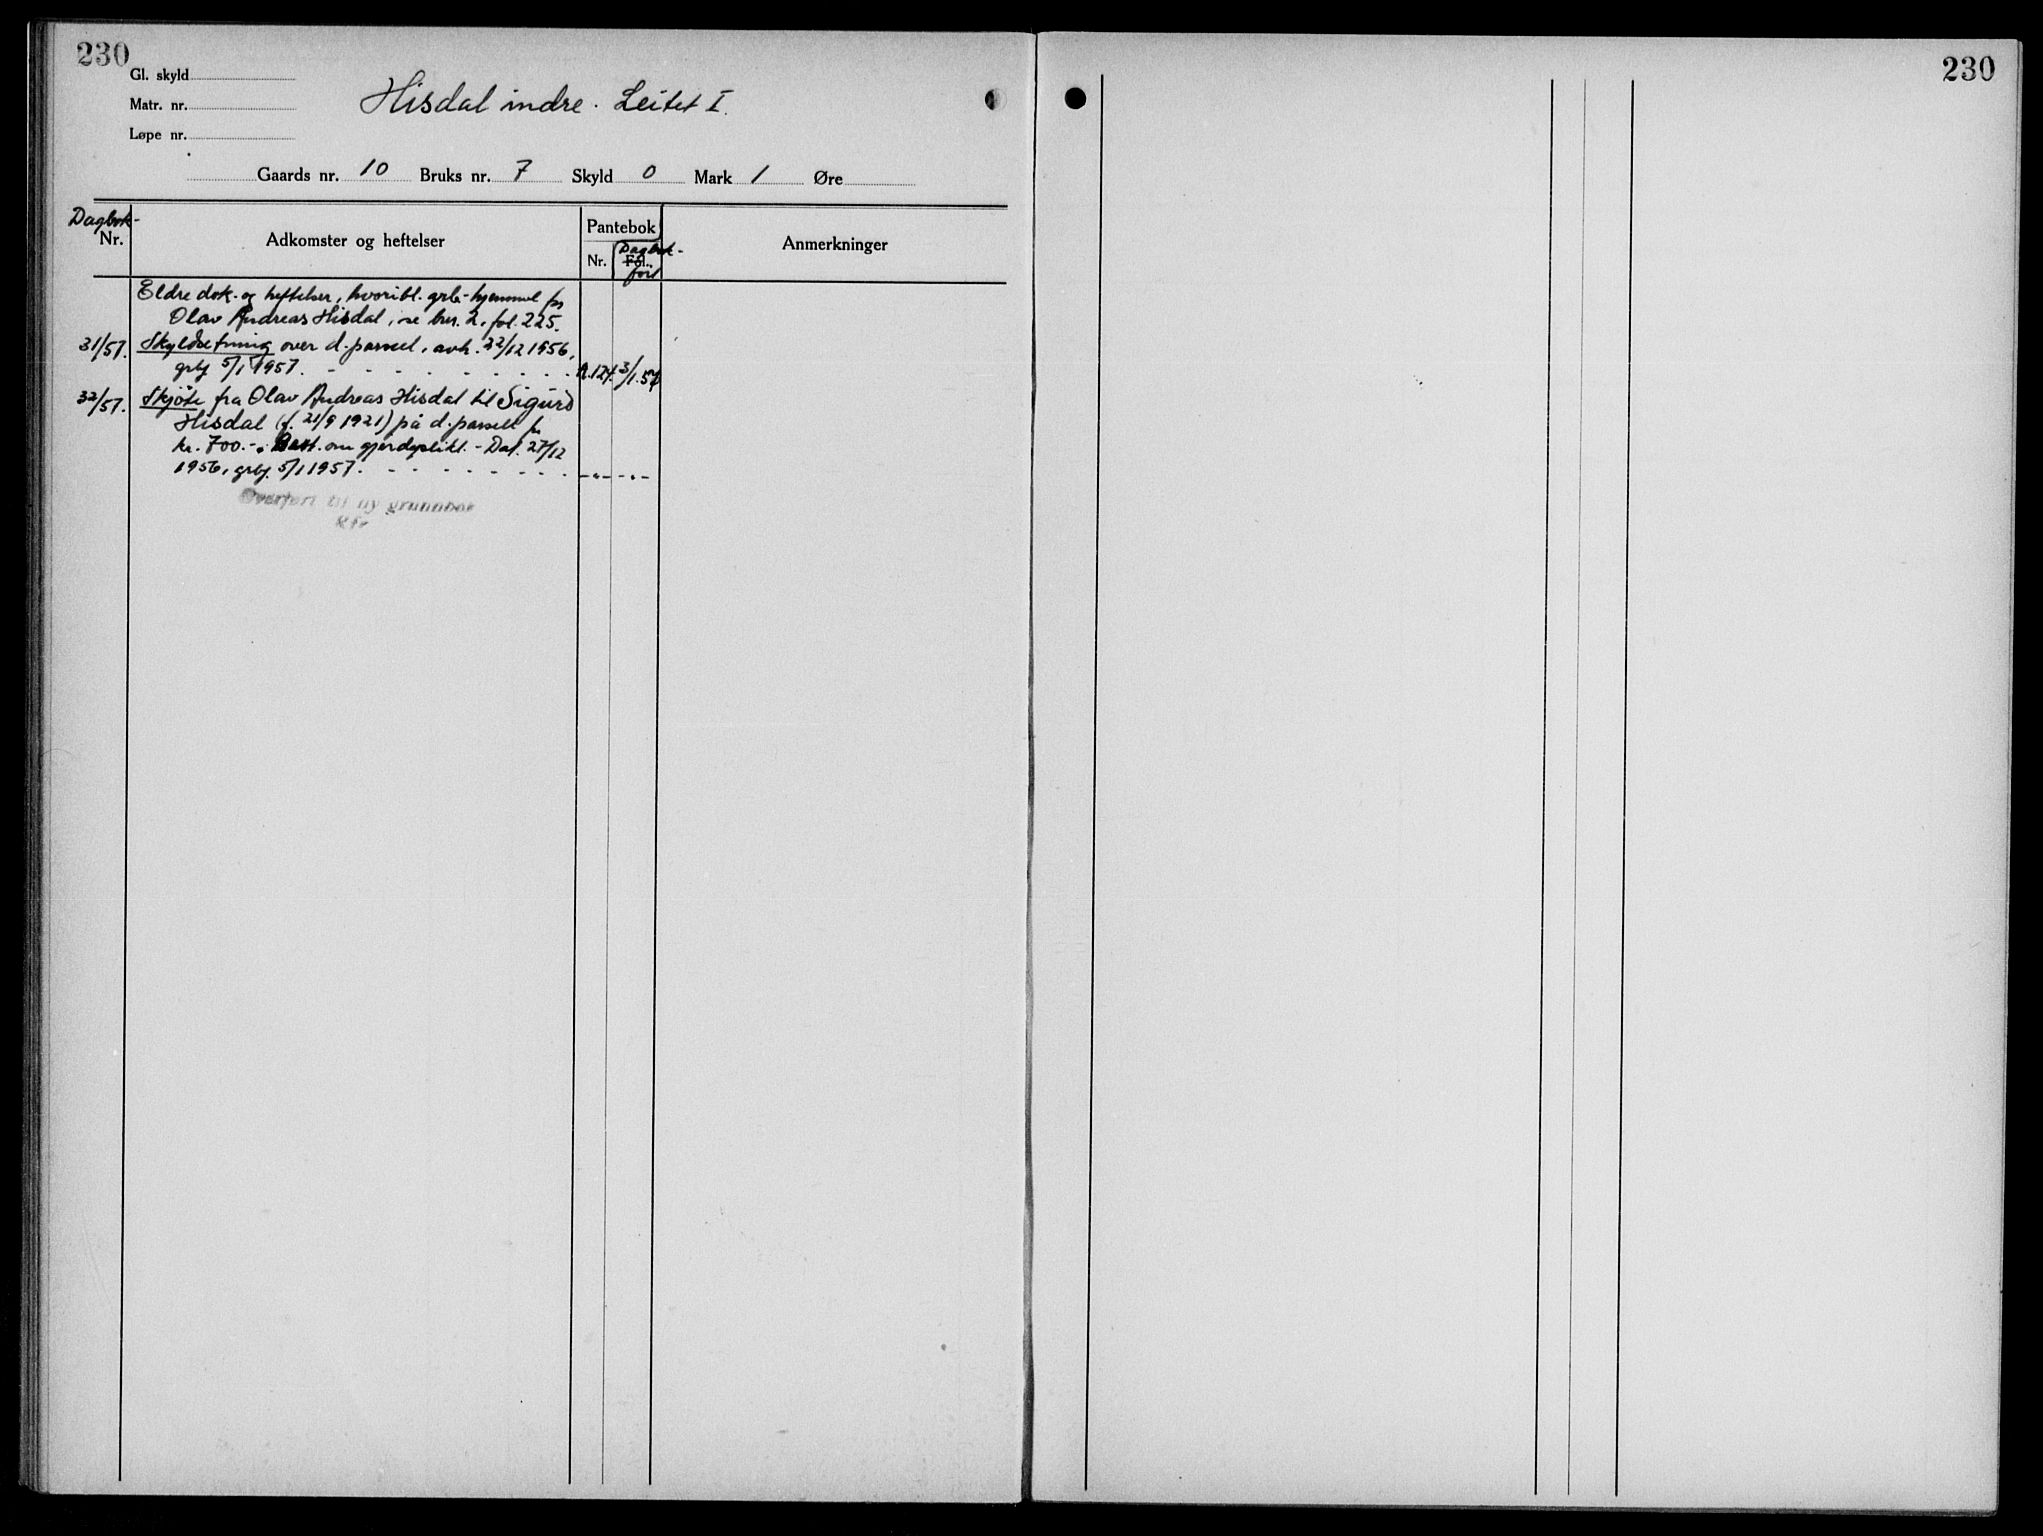 230
230
Gl. skyld
Matr. nr.
Løpe nr.
Hisdal indre. Leitet I.
Gaards nr. 10 Bruks nr. 7 Skyld 0 Mark 1 Øre
Dagbok-
Nr.
Adkomster og heftelser
Pantebok
Nr.
Fol.
Dagbok-
ført
Anmerkninger
Eldre dok. og heftelser, hvoribl. grb.-hjemmel for
Olav Andreas Hisdal, se bnr. 2, fol. 225.
31/57. Skyldsetning over d. parsell, avh. 22/12 1956,
grbf 5/1 1957. - - - - - - - - - A.124. 3/1.57
32/57. Skjøte fra Olav Andreas Hisdal til Sigurd
Hisdal (f. 21/9 1921) på d. parsell for
kr. 700.-. Best. om gjerdeplikt. - Dat. 27/12
1956, grbf. 5/1 1957. - - - - - - - - -"- -"-
Overført til ny grunnbok